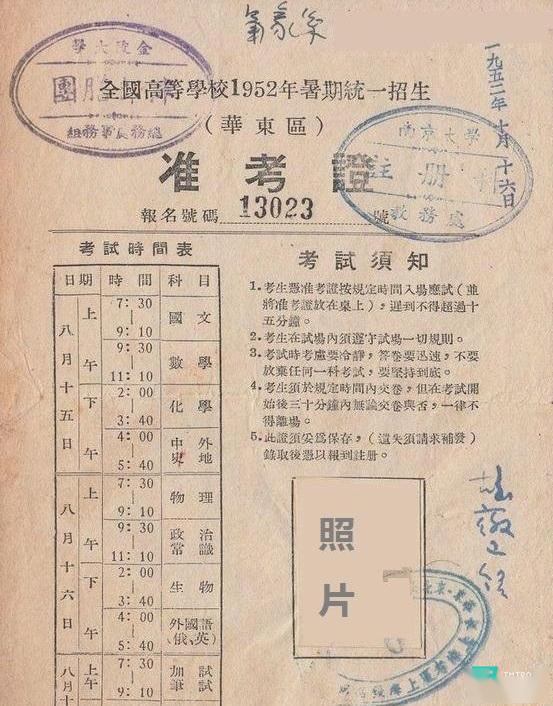 一九五二年十月十六日
金陵大學
團
總務處事務組
全國高等學校1952年暑期統一招生
（華東區）
南京大學
註冊
教務處
准考證
報名號碼 13023 號
考試時間表
日期 時間 科目
八月十五日
上午
7：30 | 9：10 國文
9：30 | 11：10 數學
下午
2：00 | 3：40 化學
4：00 | 5：40 中外史地
八月十六日
上午
7：30 | 9：10 物理
9：30 | 11：10 政治常識
下午
2：00 | 3：40 生物
4：00 | 5：40 外國語（俄、英）
八月十
上午
7：30 | 9：10 加試筆試
考試須知
1．考生憑准考證按規定時間入場應試（並
將准考證放在桌上），遲到不得超過十
五分鐘。
2．考生在試場內須遵守試場一切規則。
3．考試時考慮要冷靜，答卷要迅速，不要
放棄任何一科考試，要堅持到底。
4．考生須於規定時間內交卷，但在考試開
始後三十分鐘內無論交卷與否，一律不
得離場。
5．此證須妥爲保存，（遺失須請求補發）
錄取後憑以報到註冊。
照
片
TMTPO